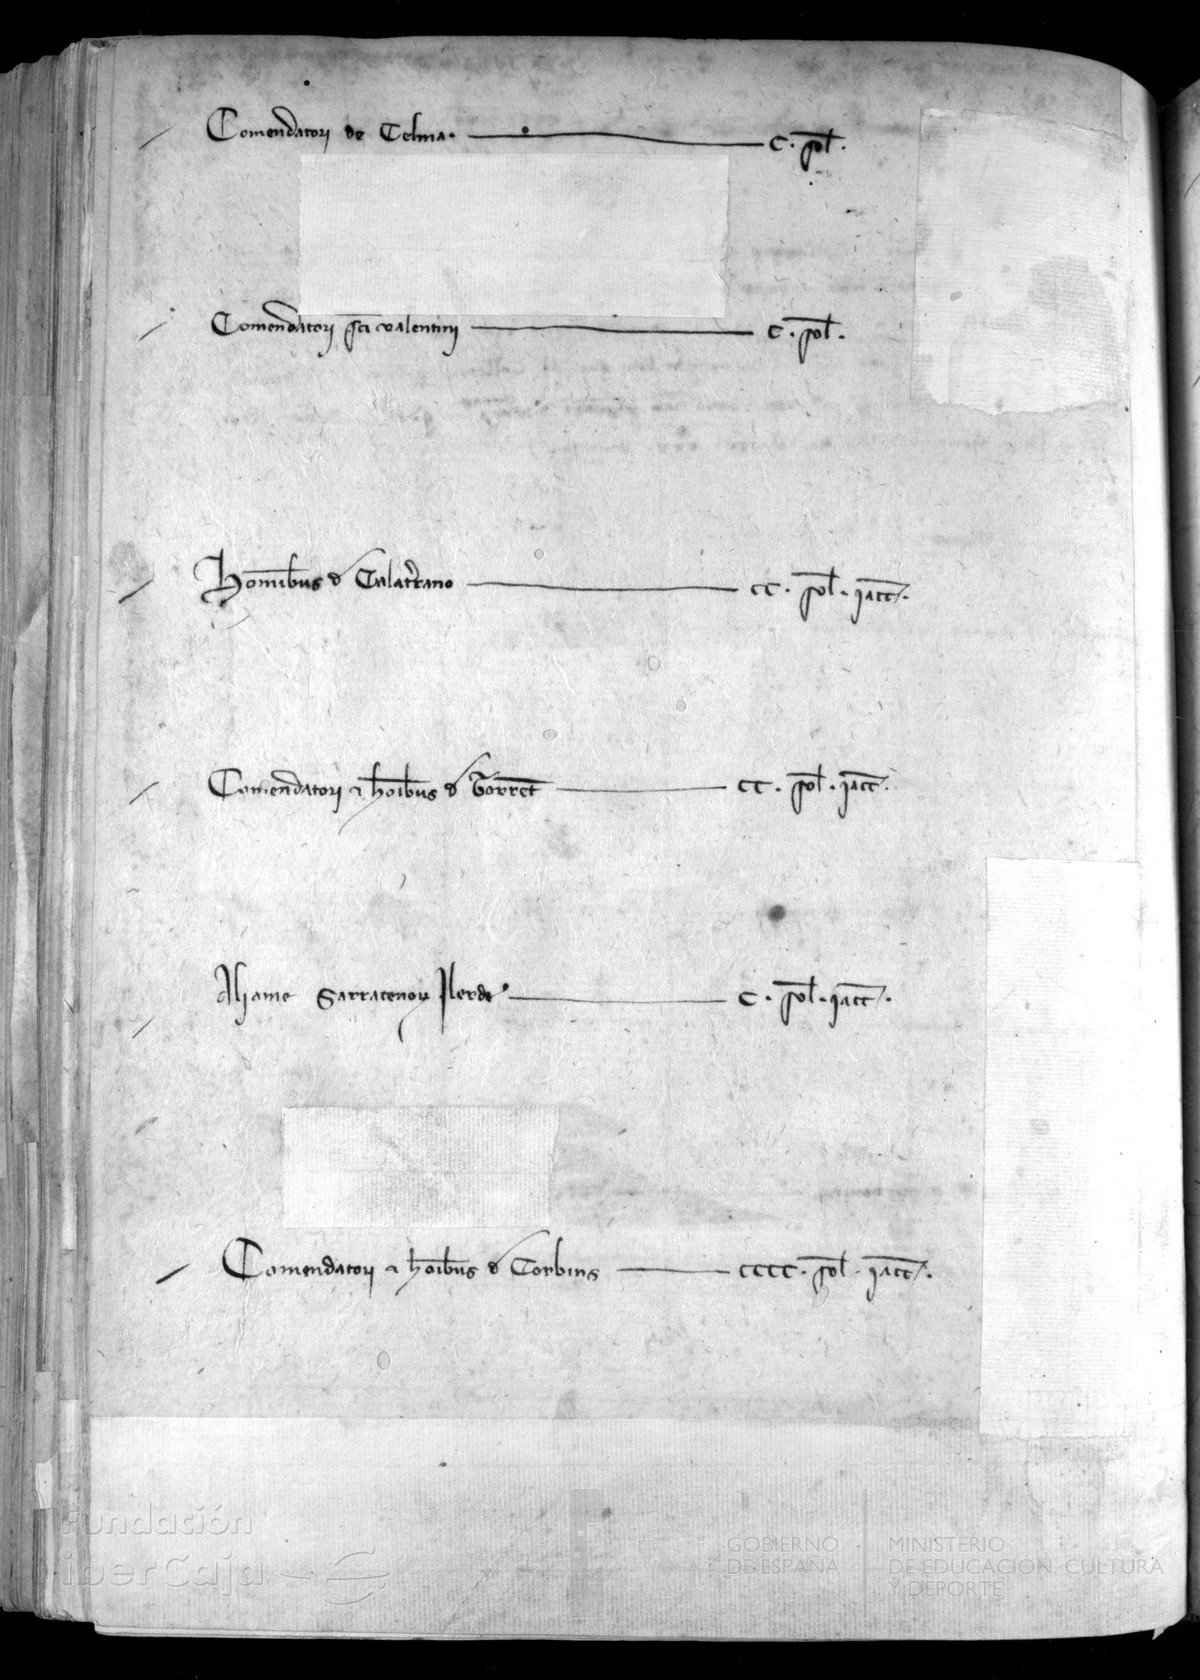 Comendatori de Celma. C. sol.
Comendatori sci valentini C. sol.
Homibus d Calatrano CC. sol. iacc.
Comendatori & hoibus d Torret CC. sol. iacc.
Aljame Sarracenor Ilerde C. sol. iacc.
Comendatori & hoibus d Corbins CCCC. sol. iacc.
Fundación
iberCaja
GOBIERNO
DE ESPAÑA
MINISTERIO
DE EDUCACIÓN, CULTURA
Y DEPORTE